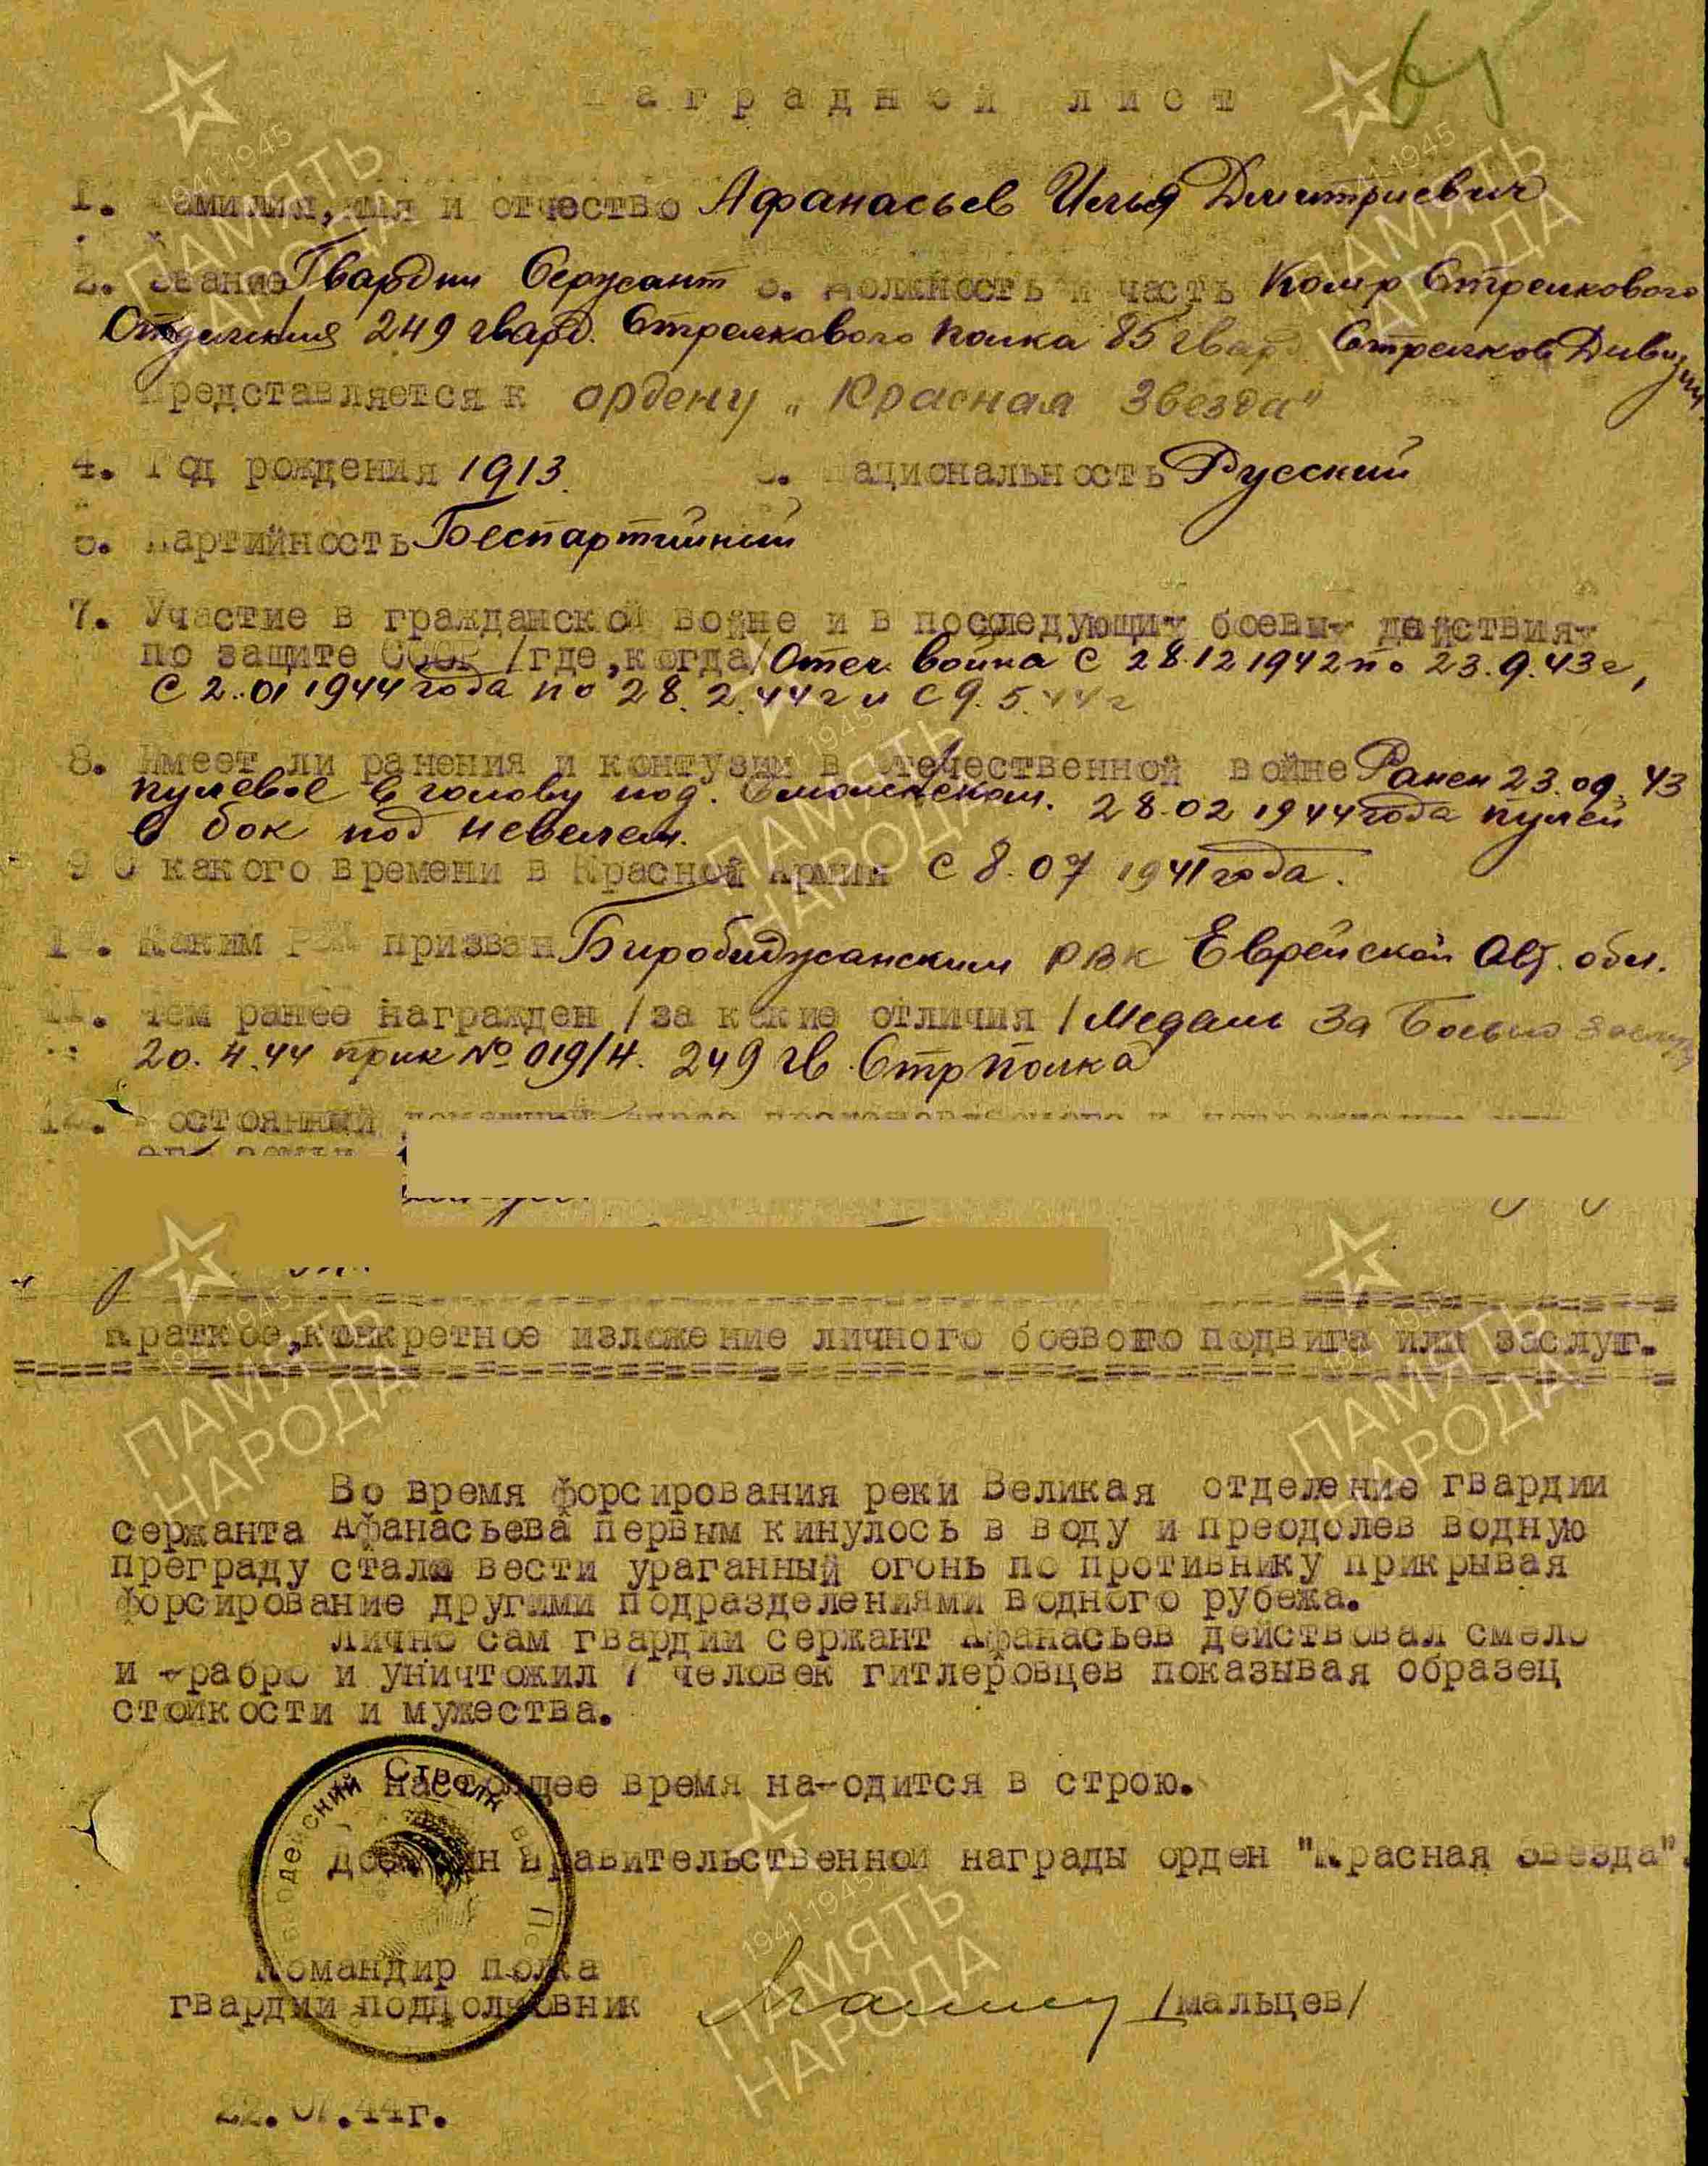 65
Наградной лист
1. Фамилия, имя и отчество Афанасьев Илья Дмитриевич
2. Звание Гвардии Сержант 3. Должность и часть Ком-р Стрелкового
Отделения 249 гвард. Стрелкового полка 85 гвард. Стрелков. Дивизии
Представляется к ордену „Красная Звезда"
4. Год рождения 1913 5. Национальность Русский
6. Партийность Беспартийный
7. Участие в гражданской войне и в последующих боевых действиях
по защите СССР /где,когда/ Отеч. война с 28.12 1942 по 23.9.43 г,
с 2.01 1944 года по 28.2.44 г и с 9.5.44 г
8. Имеет ли ранения и контузии в отечественной войне Ранен 23.09.43
пулевое в голову под. Смоленском. 28.02 1944 года пулей
в бок под Невелем.
9 С какого времени в Красной Армии с 8.07 1941 года.
10. Каким РВК призван Биробиджанским РВК Еврейской Авт. обл.
11. Чем ранее награжден /за какие отличия/ Медаль За Боевые Заслуги
20.4.44 прик № 019/Н. 249 гв. Стр полка
12. Постоянный
его семьи
Краткое,конкретное изложение личного боевого подвига или заслуг.
Во время форсирования реки Великая отделение гвардии
сержанта Афанасьева первым кинулось в воду и преодолев водную
преграду стало вести ураганный огонь по противнику прикрывая
форсирование другими подразделениями водного рубежа.
Лично сам гвардии сержант Афанасьев действовал смело
и храбро и уничтожил 7 человек гитлеровцев показывая образец
стойкости и мужества.
настоящее время находится в строю.
Достоин правительственной награды орден "Красная Звезда".
Командир полка
гвардии подполковник /мальцев/
22.07.44г.
ПАМЯТЬ НАРОДА
1941-1945